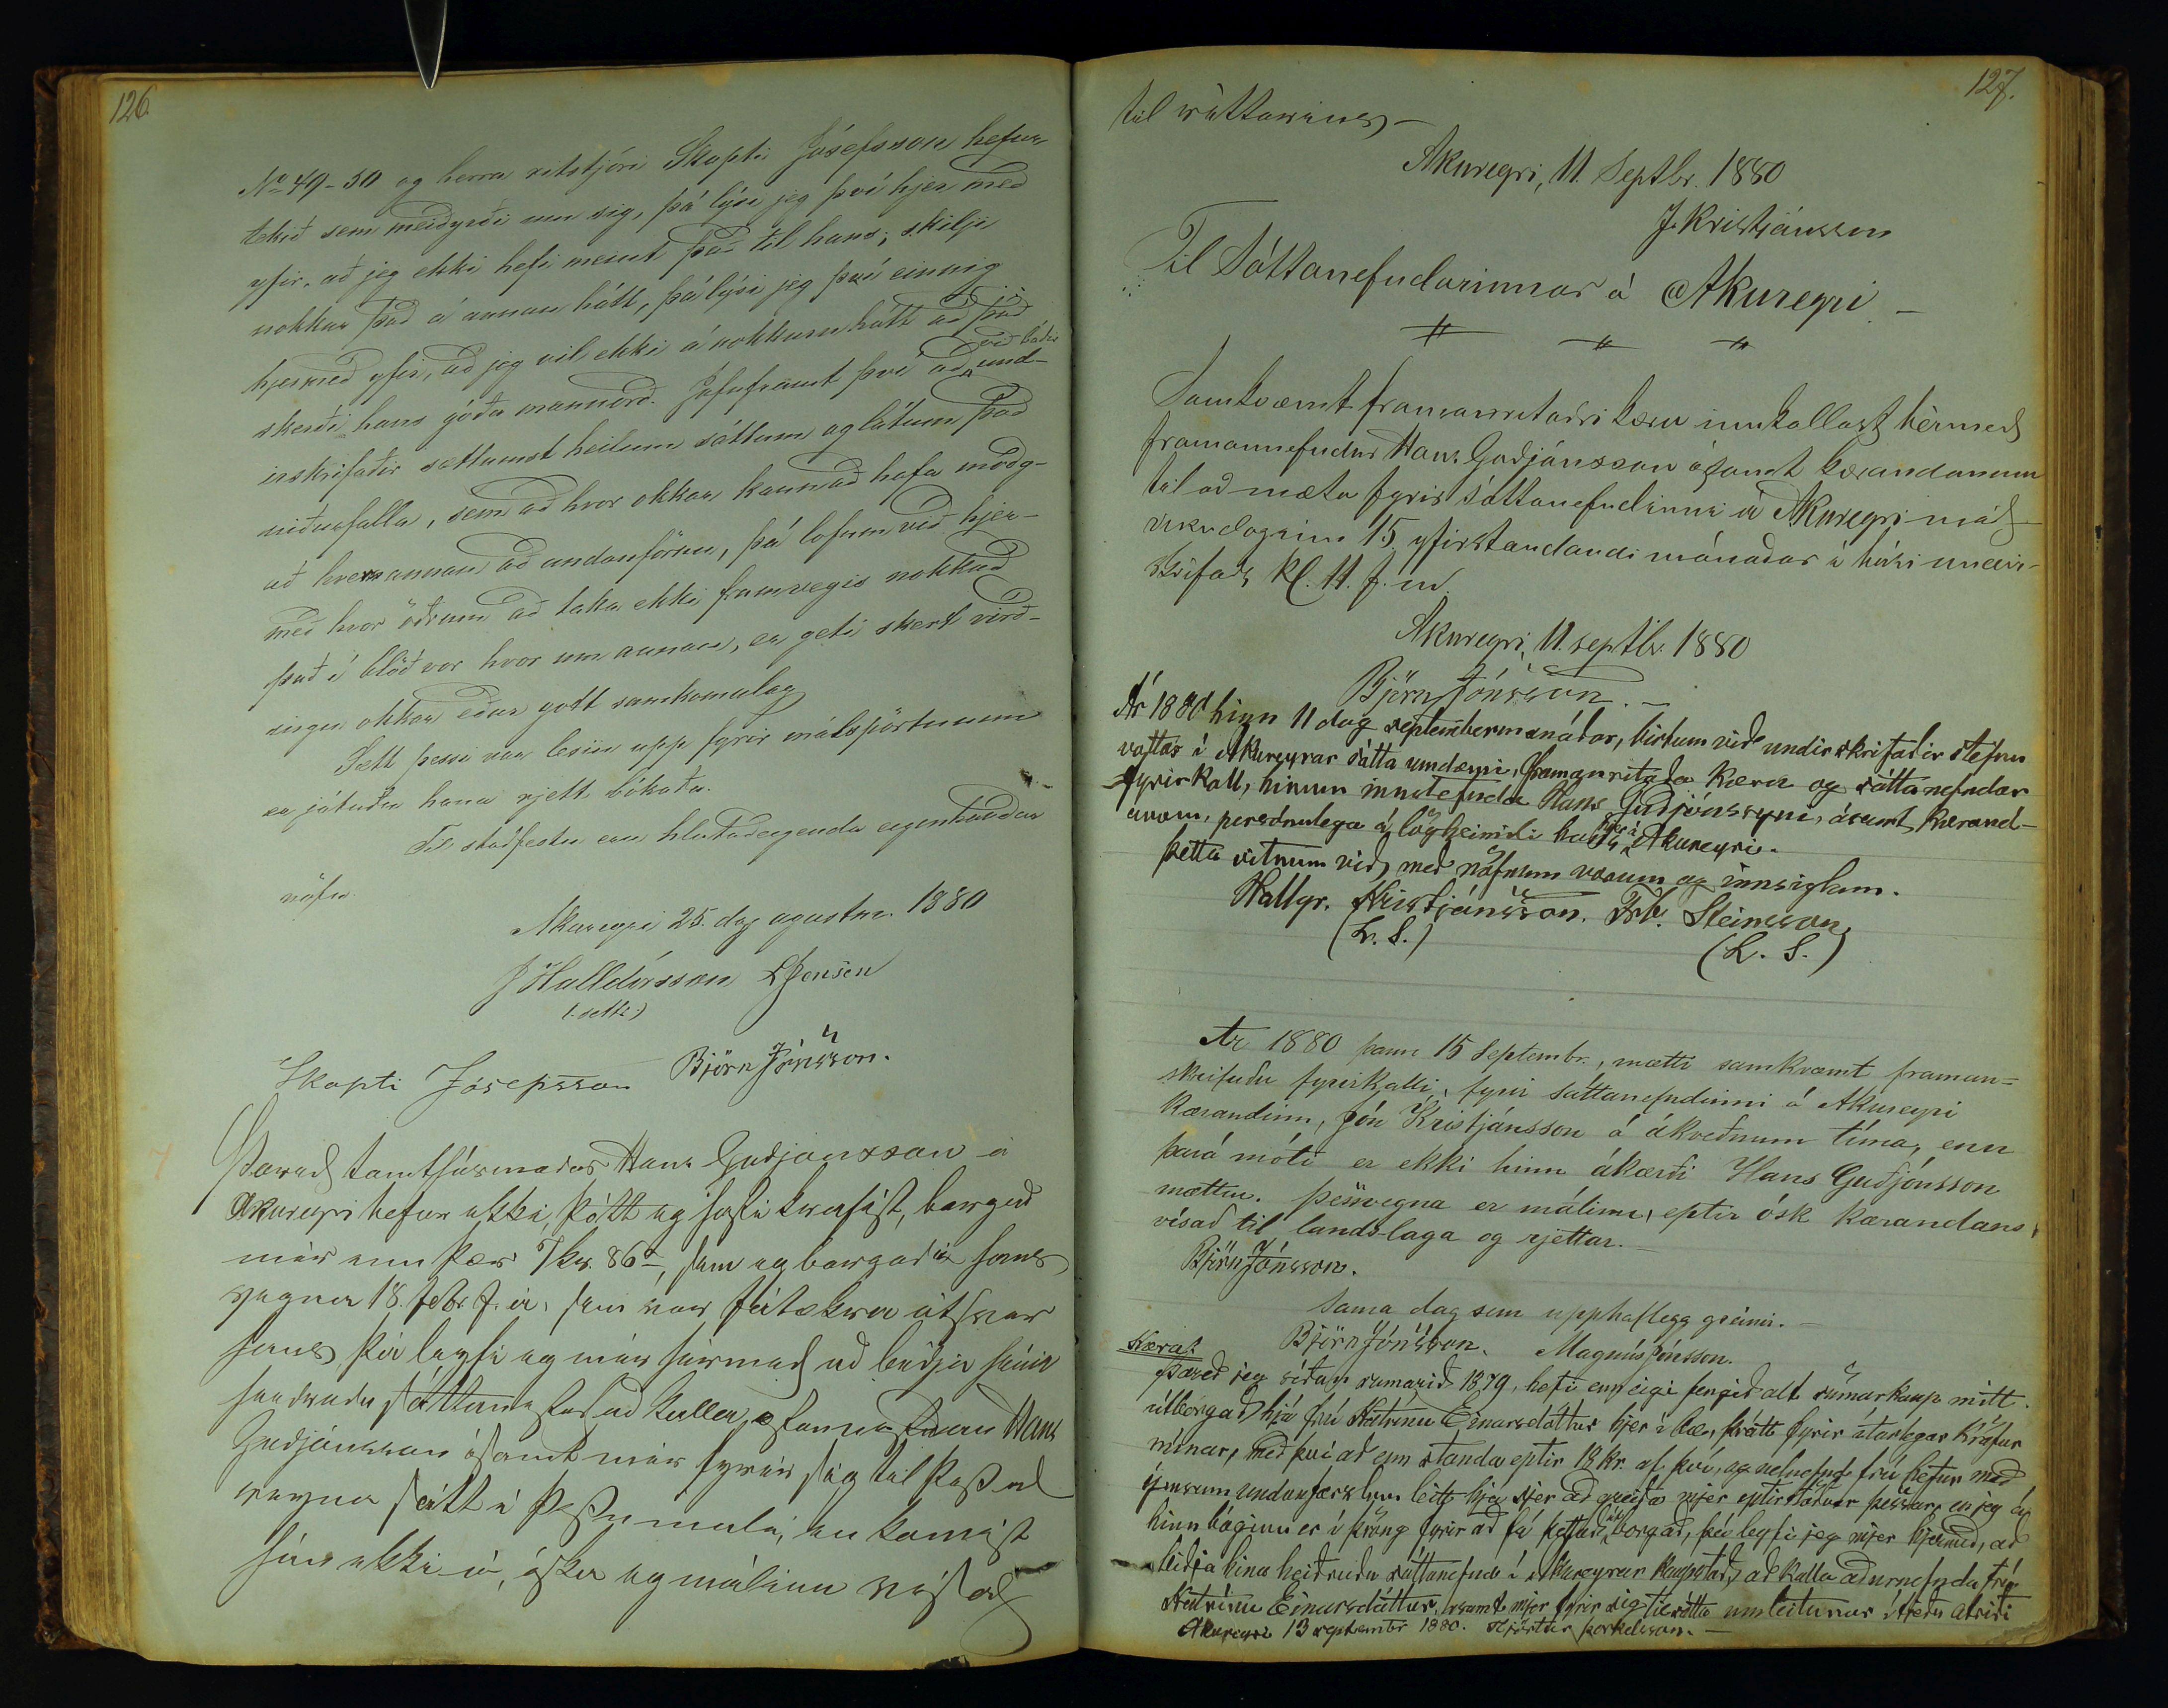 126.
No 49-50 og herra ritstjóri Skapti Jósefsson hefur
tekið sem meiðyrði um sig, þá lýsi jeg því hjer með
yfir, að jeg ekki hefi meint það til hans; skilji
nokkur það á annan hátt, þá lýsi jeg því einnig
hjermeð yfir, að jeg vil ekki á nokkurn hátt að það
skerði hans góða mannorð. Jafnframt því að við báðir und-
irskrifaðir sættumst heilum sáttum og látum það
niðurfalla, sem að hvor okkar kann að hafa móðg-
að hvern annan að undanförnu, þá lofum við hjer-
með hvor öðrum að taka ekki framvegis nokkuð
það í blöð vor hvor um annan, er geti skert virð-
ingu okkar eður gott samkomulag
Sætt þessi var lesin upp fyrir málspörtunum
er játuðu hana rjett bókaða.
Til staðfestu eru hlutaðeigenda eiginhandar
nöfn.
Akureyri 25. dag agustm. 1880
J Halldórsson L Jensen
(:settr:)
Skapti Jósepsson Björn Jónsson.
7
Þareð tomthúsmaður Hans Guðjónsson á
Akureyri hefur ekki, þótt eg hafi krafist, borgað
mér enn þær 7 kr. 86 a, sem eg borgaði hans
vegna 18. febr. f. á. sem var fátækra útsvar
hans, þá leyfi eg mér hérmeð að beiðja hina
heiðruðu sáttanefnd að kalla ofannefndan Hans
Guðjónsson ásamt mér fyrir sig til þess að
reyna sátt í þessu máli, en komist
hún ekki á, óska eg málinu vísað
127.
til réttarins,-
Akureyri, 11. Septbr. 1880
J. Kristjánsson
Til Sáttanefndarinnar á Akureyri. -
Samkvæmt framanritaðri kæru innkallast hérmeð
framannefndur Hans Guðjónsson ásamt kærandanum
til að mæta fyrir sáttanefndinni á Akureyri mið-
vikudaginn 15 yfirstandandi mánaðar í húsi undir-
skrifaðs kl. 11. f. m.
Akureyri, 11. septbr. 1880
Björn Jónsson. -
Ár 1880 hinn 11 dag septembermánaðar, birtum við undirskrifaðir stefnu
vottar í Akureyrar sátta umdæmi, framanritaða kæru og sáttanefndar
fyrirkall, hinum innstefnda Hans Guðjónssyni, ásamt kærand-
anum, persónulega á lögheimili hans hjer á Akureyri.
þetta vitnum við með nöfnum vorum og innsiglum.
Hallgr. Kristjánsson. Frb. Steinsson
(L. S.) (L. S.)
Ár 1880 þann 15 Septembr., mætti samkvæmt framan=
skrifuðu fyrirkalli, fyrir sáttanefndinni á Akureyri
kærandinn, Jón Kristjánsson á ákveðnum tíma, enn
þará móti er ekki hinn ákærði Hans Guðjónsson
mættur. þessvegna er málinu, eptir ósk kærandans,
vísað til lands-laga og rjettar.
Björn Jónsson.
Sama dag sem upphaflega greinir. -
Björn Jónsson. Magnús Jónsson.
8
Kæra:
Þareð jeg síðan sumarið 1879, hefi enn eigi fengið alt sumarkaup mitt
útborgað hjá frú Katrínu Einarsdóttur hjer í bæ, þrátt fyrir ítarlegar kröfur
mínar, með því að enn standa eptir 18 kr. af því, og nefnd frú hefur með
ýmsum undanfærslum leitt hjá sjer að greiða mjer eptirstöðvar þessar, en jeg á
hinn bóginn er í þröng fyrir að fá þettað útborgað, þá leyfi jeg mjer hjermeð, að
beiðja hina heiðruðu sáttanefnd í Akureyrar kaupstað, að kalla áðurnefnda frú
Katrínu Einarsdóttur, ásamt mjer fyrir sig til sátta umleitunar í tjeðu atriði
Akureyri 13 september 1880. Hjörtur Þorkelsson. -